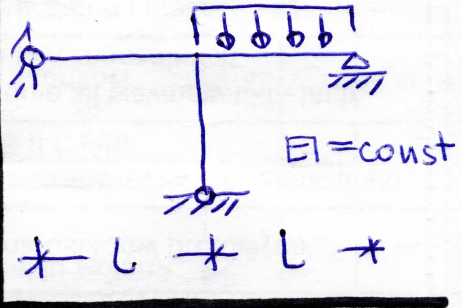 EI=const
L L